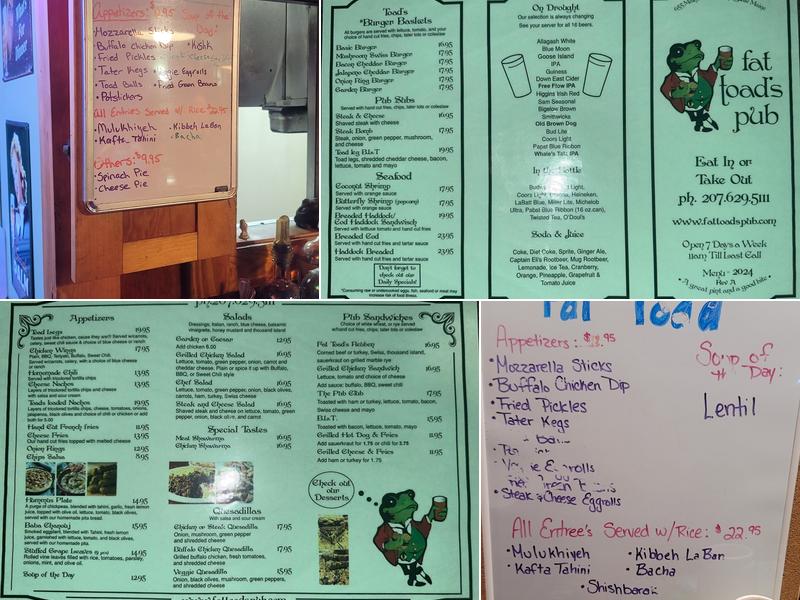 Appetizers: $
Soup of the
Day:
Mozzarella Sticks
Buffalo Chicken Dip
• Kishk
• Fried Pickles
• Tater Kegs
Eggrolls
• Toad Balls
• Fried Green Beans
• Potstickers
All Entries Served w/ Rice $22.95
• Mulukhiyeh
• Kibbeh Laban
• Kafta Tahini
• Bacha
Others: $9.95
• Spinach Pie
• Cheese Pie
Toad's
*Burger Baskets
All burgers are served with lettuce, tomato, and your
choice of hand cut fries, chips, tater tots or coleslaw
Basic Burger 16.95
Mushroom Swiss Burger 17.95
Bacon Cheddar Burger 17.95
Jalapeno Cheddar Burger 17.95
Onion Ring Burger 17.95
Garden Burger 17.95
Pub Subs
Served with hand cut fries, chips, tater tots or coleslaw
Steak & Cheese 16.95
Shaved steak with cheese
Steak Bomb 17.95
Steak, onion, green pepper, mushroom,
and cheese
Toad leg B.L.T 19.95
Toad legs, shredded cheddar cheese, bacon,
lettuce, tomato and mayo
Seafood
Coconut Shrimp 17.95
Served with orange sauce
Butterfly Shrimp (popcorn) 17.95
Served with orange sauce
Breaded Haddock/
Cod Haddock Sandwich 19.95
Served with lettuce tomato and hand cut fries
Breaded Cod 23.95
Served with hand cut fries and tartar sauce
Haddock Breaded 23.95
Served with hand cut fries and tartar sauce
Don't forget to
check out our
Daily Specials!
*Consuming raw or undercooked eggs, fish, seafood or meat may
increase risk of food illness.
On Draught
Our selection is always changing
See your server for all 16 beers.
Allagash White
Blue Moon
Goose Island
IPA
Guiness
Down East Cider
Free Flow IPA
Higgins Irish Red
Sam Seasonal
Bigelow Brown
Smithwicks
Old Brown Dog
Bud Lite
Coors Light
Papst Blue Ribbon
Whale's Tale IPA
In the Bottle
Light,
Coors Light, Heineken,
LaBatt Blue, Miller Lite, Michelob
Ultra, Pabst Blue Ribbon (16 oz.can),
Twisted Tea, O'Doul's
Soda & Juice
Coke, Diet Coke, Sprite, Ginger Ale,
Captain Eli's Rootbeer, Mug Rootbeer,
Lemonade, Ice Tea, Cranberry,
Orange, Pineapple, Grapefruit &
Tomato Juice
fat
toad's
pub
Eat In or
Take Out
ph. 207.629.5111
www.fattoadspub.com
Open 7 Days a Week
11am Till Last Call
Menu - 2024
Rev A
• A great pint and a good bite •
ph.207.629.5111
Appetizers
Toad Legs 19.95
Tastes just like chicken, cause they are!!! Served w/carrots,
celery, sweet chili sauce & choice of blue cheese or ranch
Chicken Wings 17.95
Plain, BBQ, Teriyaki, Buffalo, Sweet Chili.
Served w/carrots, celery, with a choice of blue cheese
or ranch
Homemade Chili 13.95
Served with tricolored tortilla chips
Cheese Nachos 13.95
Layers of tricolored tortilla chips and cheese
with salsa and sour cream
Toads loaded Nachos 19.95
Layers of tricolored tortilla chips, cheese, tomatoes, onions,
jalapenos, black olives and choice of chili or chicken or add
both for 5.00
Hand Cut French fries 11.95
Cheese Fries 13.95
Our hand cut fries topped with melted cheese
Onion Rings 12.95
Chips Salsa 8.95
Hummus Plate 14.95
A purge of chickpeas, blended with tahini, garlic, fresh lemon
juice, topped with olive oil, lettuce, tomato, black olives,
served with our homemade pita bread.
Baba Ghanouj 15.95
Smoked eggplant, blended with Tahini, fresh lemon
juice, garnished with lettuce, tomato, and black olives,
served with our homemade pita.
Stuffed Grape Leaves 14.95
Rolled vine leaves filled with rice, tomatoes, parsley,
onions, mint, and olive oil.
Soup of the Day 12.95
Salads
Dressings; Italian, ranch, blue cheese, balsamic
vinaigrette, honey mustard and thousand island
Garden or Caesar 12.95
Add chicken 6.00
Grilled Chicken Salad 16.95
Lettuce, tomato, green pepper, onion, carrot and
cheddar cheese. Plain or spice it up with Buffalo,
BBQ, or Sweet Chili
Chef Salad 16.95
Lettuce, tomato, green pepper, onion, black olives,
carrots, ham, turkey, Swiss cheese
Steak and Cheese Salad 16.95
Shaved steak and cheese on lettuce, tomato, green
pepper, onion, black olive, and carrot
Special Tastes
Meat Shawarma 16.95
Chicken Shawarma 16.95
Quesadillas
With salsa and sour cream
Chicken or Steak Quesadilla 17.95
Onion, mushroom, green pepper,
and shredded cheese
Buffalo Chicken Quesadilla 17.95
Grilled buffalo chicken, fresh tomatoes,
and shredded cheese
Veggie Quesadilla 15.95
Onion, black olives, mushroom, green peppers,
and shredded cheese
Pub Sandwiches
Choice of white wheat, or rye served
w/hand cut fries, chips, tater tots or coleslaw
Fat Toad's Reuben 16.95
Corned beef or turkey, Swiss, thousand island,
saurkraut on grilled marble rye
Grilled Chicken Sandwich 16.95
Lettuce, tomato and choice of cheese
Add sauce: buffalo, BBQ, sweet chili
The Pub Club 17.95
Toasted with ham or turkey, lettuce, tomato, bacon,
Swiss cheese and mayo
B.L.T. 15.95
Toasted with bacon, lettuce, tomato, mayo
Grilled Hot Dog & Fries 11.95
Add sauerkraut for 1.75 or chili for 3.75
Grilled Cheese & Fries 11.95
Add ham or turkey for 1.75
Check out
our
Desserts!
www.fattoadspub.com
Fat Toad
Appetizers:
Soup of
the Day:
• Mozzarella Sticks
• Buffalo Chicken Dip
Lentil
• Fried Pickles
• Tater Kegs
Eggrolls
• Steak & Cheese Eggrolls
All Entree's Served w/Rice: $22.95
• Mulukhiyeh
• Kibbeh LaBan
• Kafta Tahini
• Bacha
• Shishbarak